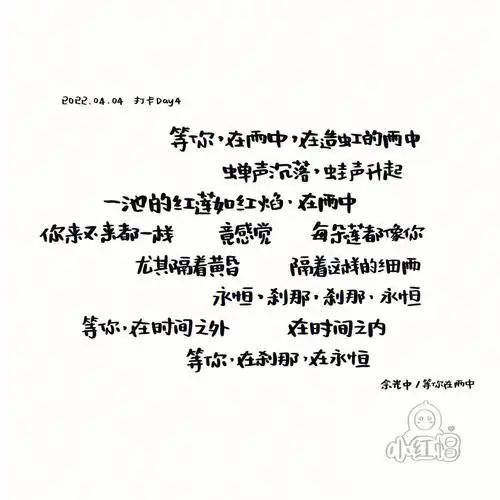 2022.04.04 打卡Day4
等你,在雨中,在造虹的雨中
蝉声沉落,蛙声升起
一池的红莲如红焰,在雨中
你来不来都一样 竟感觉 每朵莲都像你
尤其隔着黄昏 隔着这样的细雨
永恒,刹那,刹那,永恒
等你,在时间之外 在时间之内
等你,在刹那,在永恒
余光中/等你在雨中
小红帽